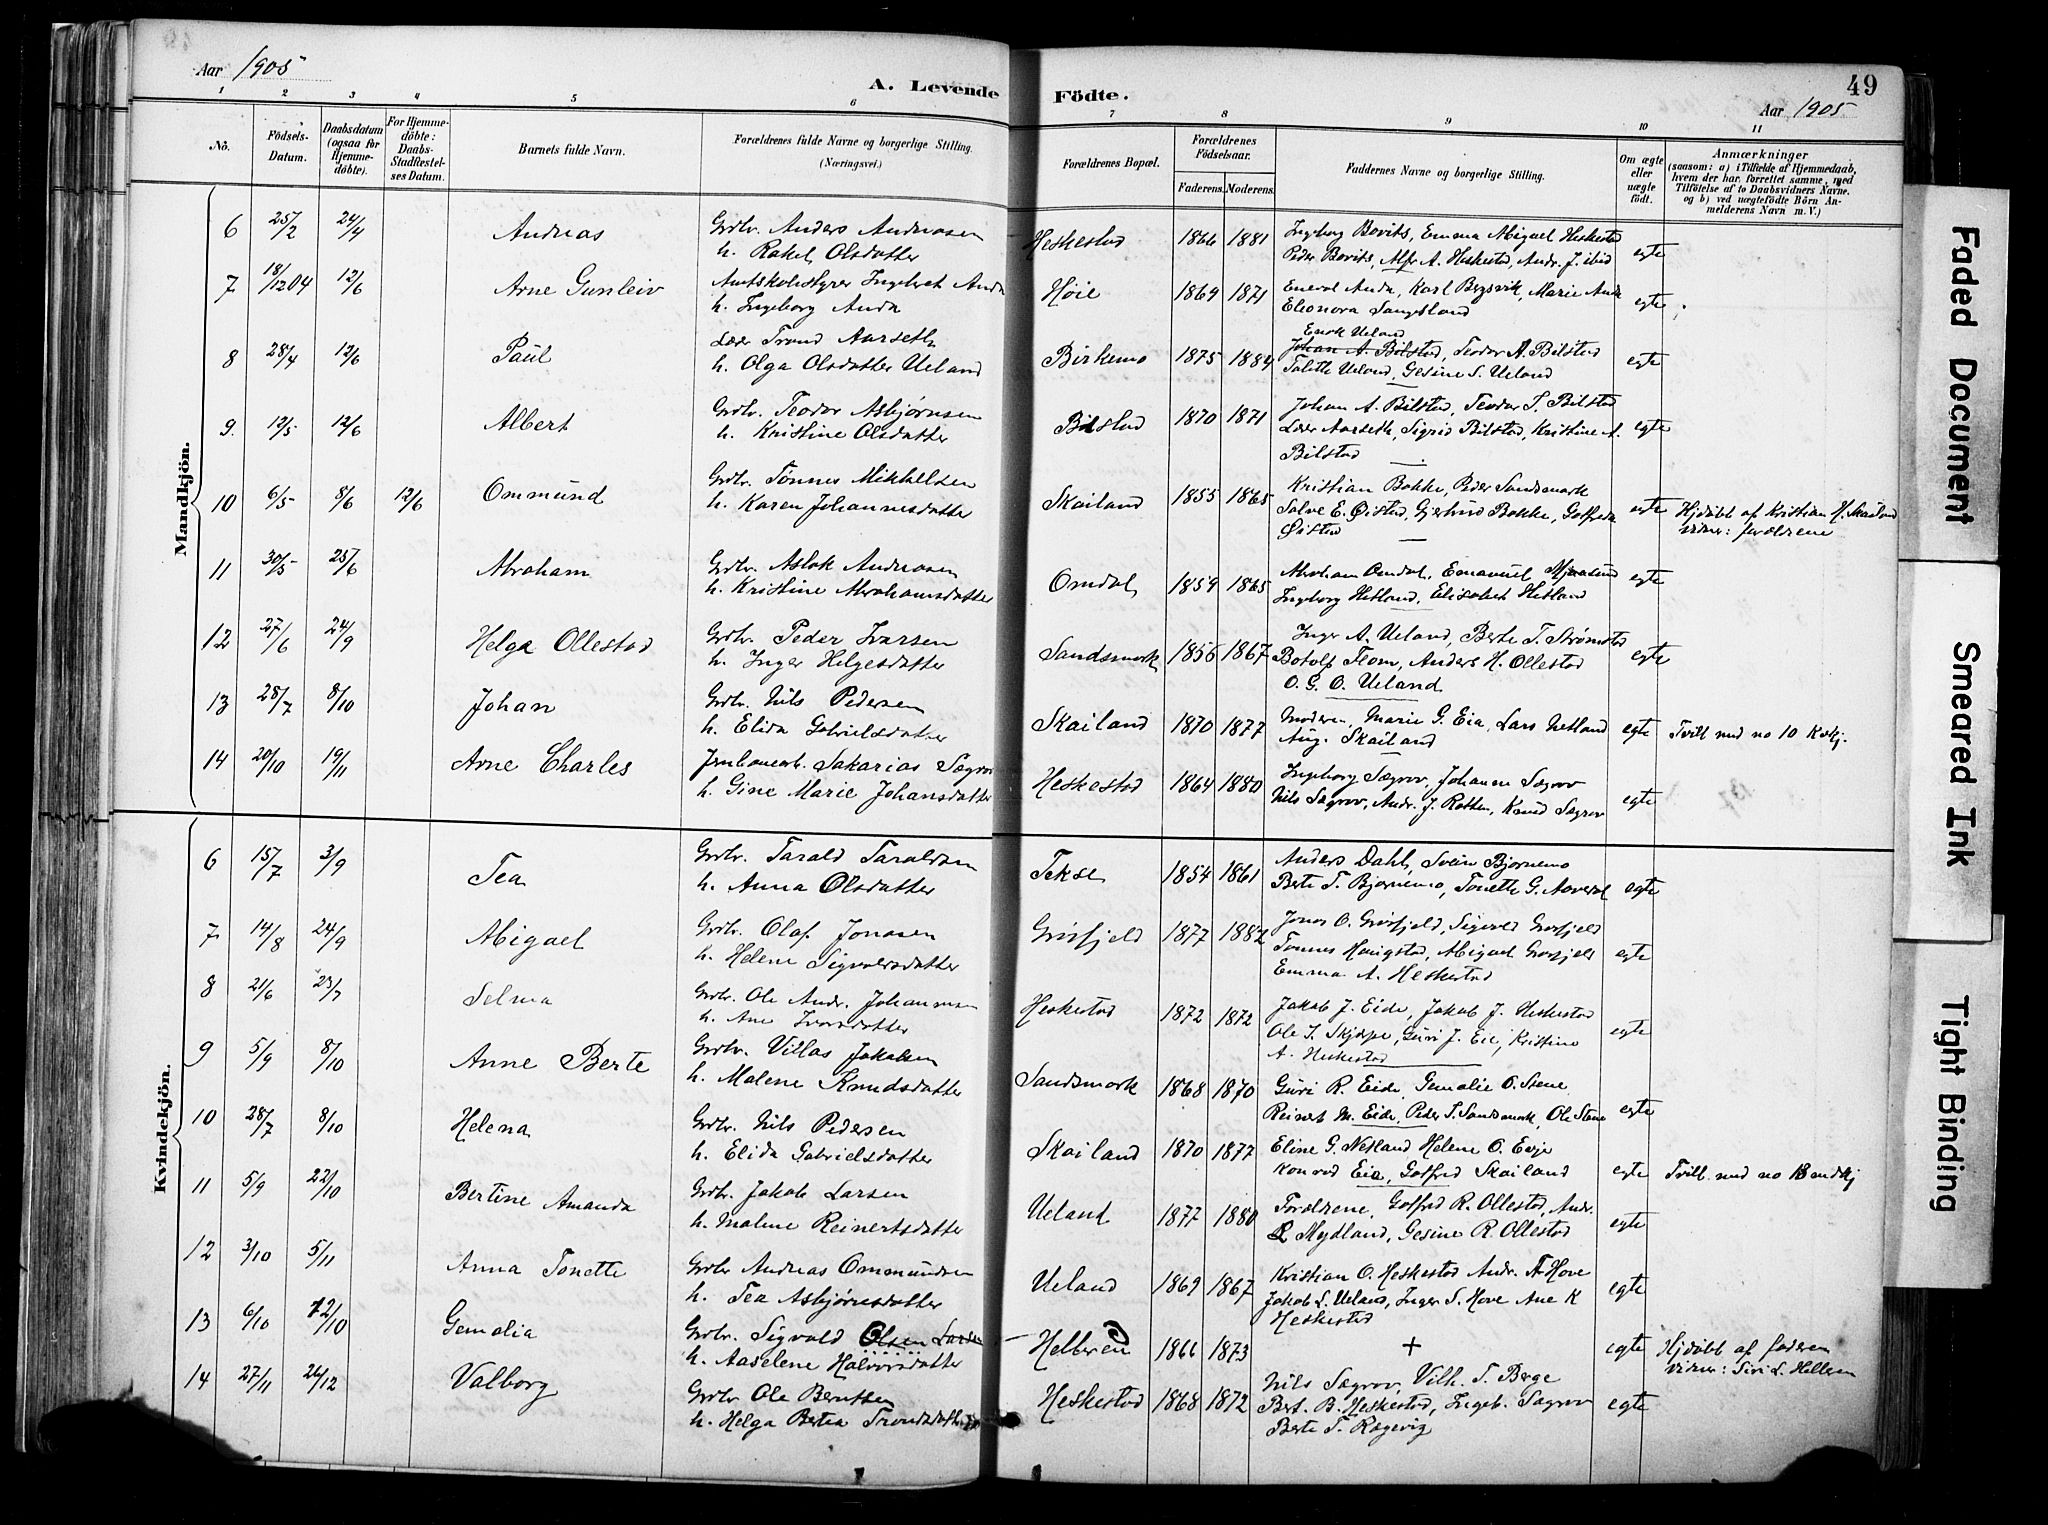 Aar 1905
A. Levende Födte.
49
Aar 1905
1 2 3 4 5 6 7 8 9 10 11
No.
Födsels-Datum.
Daabsdatum (ogsaa for Hjemmedöbte).
For Hjemmedöbte: Daabs-Stadfæstelses Datum.
Barnets fulde Navn.
Forældrenes fulde Navne og borgerlige Stilling. (Næringsvei.)
Forældrenes Bopæl.
Forældrenes Födselsaar.
Faderens. Moderens.
Faddernes Navne og borgerlige Stilling.
Om ægte eller uægte født.
Anmærkninger
(saasom: a) i Tilfælde af Hjemmedaab, hvem der har forrettet samme, med Tilföielse af to Daabsvidners Navne, og b) ved uægtefödte Börn Anmelderens Navn m. V.)
Mandkjön.
6 25/2 24/4 Andreas
Grdbr. Anders Andreasen
h. Rakel Olsdatter
Heskestad 1866 1881
Ingborg Bovits, Emma Abigael Heskestad
Peder Bovits, Alfr A. Heskestad, Andr. J. ibid
egte
7 18/12 04 12/6 Arne Gunleiv
Amtskolestyrer Ingebret Anda
h. Ingeborg Anda
Høie 1869 1871
Enevol Anda, Karl Bergsvik, Marie Anda
Eleonora
egte
8 28/4 12/6 Paul
Lærer Trond Aarseth
h. Olga Olsdatter Ueland
Birkemo 1875 1884
Enok Ueland
Johan A. Bilstad, Teodor A. Bilstad
Talette Ueland, Gesine S. Ueland
egte
9. 12/5 12/6 Albert
Grdbr. Teodor Asbjørnsen
h. Kristine Olsdatter
Bilstad 1870 1871
Johan A. Bilstad, Teodor T. Bilstad
Lærer Aarseth, Sigrid Bilstad, Kristine A.
Bilstad
egte
10 6/5 8/6 12/6 Ommund
Grdbr. Tønnes Mikkelsen
h. Karen Johannesdatter
Skailand 1855 1865
Kristian Bakke, Peder Sandsmark
Salve E. Øistad, Gjertrud Bakke, Gotfreda
Øistad
egte
Hjdøbt af Kristian H. Skailand
vidner: forældrene
11 30/5 25/6 Abraham
Grdbr. Aslak Andreasen
h. Kristine Abrahamsdatter
Omdal 1859 1865
Abraham Omdal, Emanuel
Ingeborg Hetland, Elisabet Hetland
egte
12 27/6 24/9 Helga Ollestad
Grdbr. Peder Ivarsen
h. Inger Helgesdatter
Sandsmork 1856 1867
Inger A. Ueland, Berte T. Strømstad
Botolf Flom, Anders H. Ollestad
O. G. O. Ueland
egte
13 28/7 8/10 Johan
Grdbr. Nils Pedersen
h. Elida Gabrielsdatter
Skailand 1870 1877
Moderen, Marie G. Eia, Lars Netland
Aug. Skailand
egte
Tvill. med no 10 Kvkj.
14 20/10 19/11 Arne Charles
Jernbanearb. Sakarias Sægrov
h. Gine Marie Johansdatter
Heskestad 1864 1880
Ingeborg Sægrov, Johanne Sægrov
Nils Sægrov, Andr. J. Rotten, Knud Sægrov
egte
Kvindekjön.
6 15/7 3/9 Tea
Grdbr. Tarald Taraldsen
h. Anna Olsdatter
Tekse 1854 1861
Anders Dahl, Svein Bjørnemo
Berte T. Bjørnemo, Tonette G.
egte
7 14/8 24/9 Abigael
Grdbr. Olaf Jonasen
h. Helene Sigvaldsdatter
Grøsfjeld 1877 1882
Jonas O. Grøsfjeld, Sigvald Grøsfjeld
Tønnes Haugstad, Abigael Grøsfjeld
Emma A. Heskestad
egte
8 21/6 23/7 Selma
Grdbr. Ole Andr. Johannesen
h. Ane Ivarsdatter
Heskestad 1872 1872
Jakob J. Eide, Jakob J. Heskestad
Ole T. Skjæpe, Guri J. Eie, Kristine
A. Heskestad
egte
9 5/9 8/10 Anne Berte
Grdbr. Villas Jakobsen
h. Malene Knudsdatter
Sandsmork 1868 1870
Guri R. Eide, Gemalie O. Stene
Reinert M. Eide, Peder T. Sandsmork, Ole Stene
egte
10 28/7 8/10 Helena
Grdbr. Nils Pedersen
h. Elida Gabrielsdatter
Skailand 1870 1877
Eline G. Netland Helene O. Eeje
Konrad Eia, Gotfred Skailand
egte
Tvill. med no 13 mandkj
11 5/9 22/10 Bertine Amanda
Grdbr. Jakob Larsen
h. Malene Reinertsdatter
Ueland 1877 1880
Forældrene, Gotfred R. Ollestad, Andr.
L Mydland, Gesine R. Ollestad
egte
12 3/10 5/11 Anna Tonette
Grdbr Andreas Ommundsen
h. Tea Asbjørnsdatter
Ueland 1869 1867
Kristian O. Heskestad Andr. A Hove
Jakob L. Ueland, Inger S. Hove Ane K
Heskestad
egte
13 6/10 12/10 Gemalia
Grdbr. Sigvald Olsen Larsen
h. Aaselene Halvorsdatter
Helleren 1866 1873
+
egte
Hjdøbt af faderen
vidner: Siri L. Helleren
14 27/11 26/12 Valborg
Grdbr Ole Berntsen
h. Helga Bertea Trondsdatter
Heskestad 1868 1872
Nils Sægrov, Vilh. T. Berge
Bert. B. Heskestad, Ingeb. Sægrov
Berte T. Rægevig
egte
Faded Document
Smeared Ink
Tight Binding